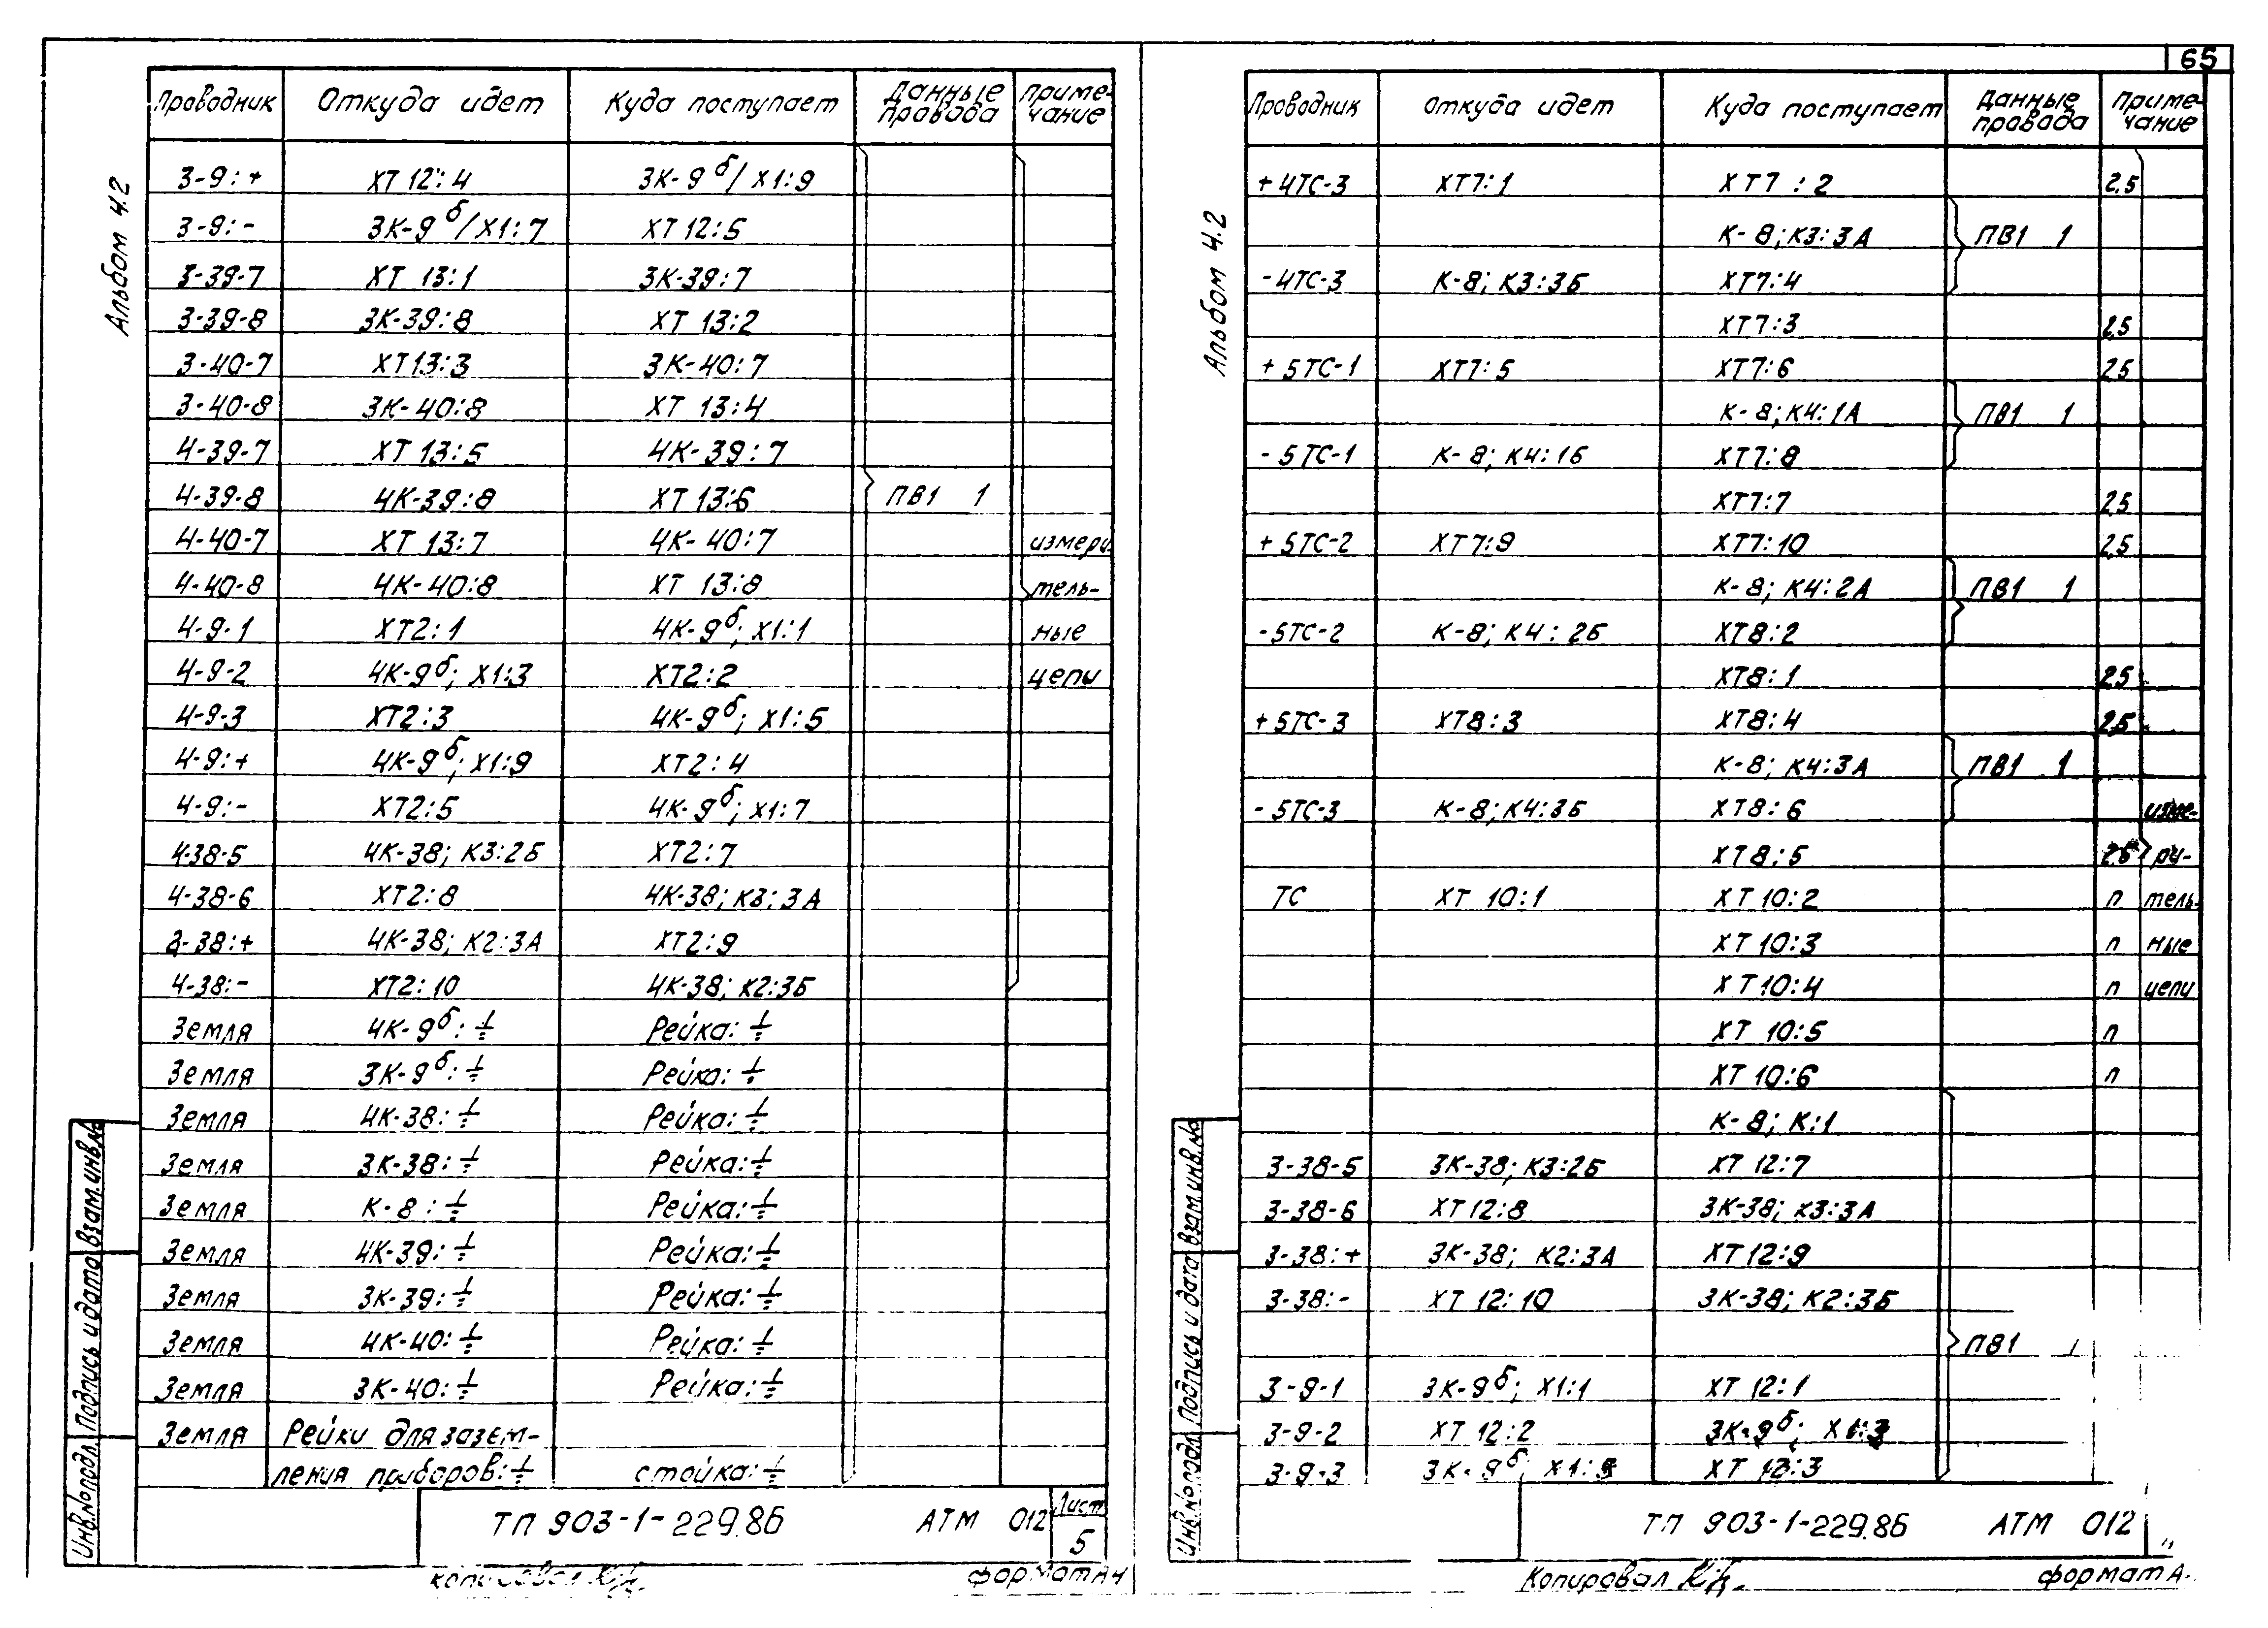 65
Альбом 4.2
Проводник Откуда идет Куда поступает Данные провода Примечание
3-9:+ ХТ 12:4 3К-9б/Х1:9
3-9:- 3К-9б/Х1:7 ХТ12:5
3-39-7 ХТ 13:1 3К-39:7
3-39-8 3К-39:8 ХТ 13:2
3-40-7 ХТ13:3 3К-40:7
3-40-8 3К-40:8 ХТ 13:4
4-39-7 ХТ 13:5 4К-39:7
4-39-8 4К-39:8 ХТ 13:6 ПВ1 1
4-40-7 ХТ 13:7 4К-40:7 измери
4-40-8 4К-40:8 ХТ 13:8 тель-
4-9-1 ХТ2:1 4К-9б; Х1:1 ные
4-9-2 4К-9б; Х1:3 ХТ2:2 цепи
4-9-3 ХТ2:3 4К-9б; Х1:5
4-9:+ 4К-9б; Х1:9 ХТ2:4
4-9:- ХТ2:5 4К-9б; Х1:7
4-38-5 4К-38; К3:2Б ХТ2:7
4-38-6 ХТ2:8 4К-38; К3:3А
2-38:+ 4К-38; К2:3А ХТ2:9
4-38:- ХТ2:10 4К-38; К2:3Б
Земля 4К-9б:⏚ Рейка:⏚
Земля 3К-9б:⏚ Рейка:⏚
Земля 4К-38:⏚ Рейка:⏚
Земля 3К-38:⏚ Рейка:⏚
Земля К-8:⏚ Рейка:⏚
Земля 4К-39:⏚ Рейка:⏚
Земля 3К-39:⏚ Рейка:⏚
Земля 4К-40:⏚ Рейка:⏚
Земля 3К-40:⏚ Рейка:⏚
Земля Рейки для зазем-
ления приборов:⏚ стойка:⏚
Инв.№подл. Подпись и дата Взам.инв.№
ТП 903-1-229.86 АТМ 012 Лист
5
Копировал
формат А4
Альбом 4.2
Проводник Откуда идет Куда поступает Данные провода Примечание
+4ТС-3 ХТ7:1 ХТ7:2 2,5
К-8; К3:3А ПВ1 1
-4ТС-3 К-8; К3:3Б ХТ7:4
ХТ7:3 2,5
+5ТС-1 ХТ7:5 ХТ7:6 2,5
К-8; К4:1А ПВ1 1
-5ТС-1 К-8; К4:1б ХТ7:8
ХТ7:7 2,5
+5ТС-2 ХТ7:9 ХТ7:10 2,5
К-8; К4:2А ПВ1 1
-5ТС-2 К-8; К4:2Б ХТ8:2
ХТ8:1 2,5
+5ТС-3 ХТ8:3 ХТ8:4 2,5
К-8; К4:3А ПВ1 1
-5ТС-3 К-8; К4:3Б ХТ8:6 изме-
ХТ8:5 2,5 ри-
ТС ХТ 10:1 ХТ 10:2 п тель-
ХТ 10:3 п ные
ХТ 10:4 п цепи
ХТ 10:5 п
ХТ 10:6 п
К-8; К:1
3-38-5 3К-38; К3:2Б ХТ 12:7
3-38-6 ХТ12:8 3К-38; К3:3А
3-38:+ 3К-38; К2:3А ХТ12:9
3-38:- ХТ 12:10 3К-38; К2:3Б
ПВ1
3-9-1 3К-9б; Х1:1 ХТ 12:1
3-9-2 ХТ 12:2 3К-9б; Х1:3
3-9-3 3К-9б; ХТ 12:3
Инв.№подл. Подпись и дата Взам.инв.№
ТП 903-1-229.86 АТМ 012
Копировал
формат А